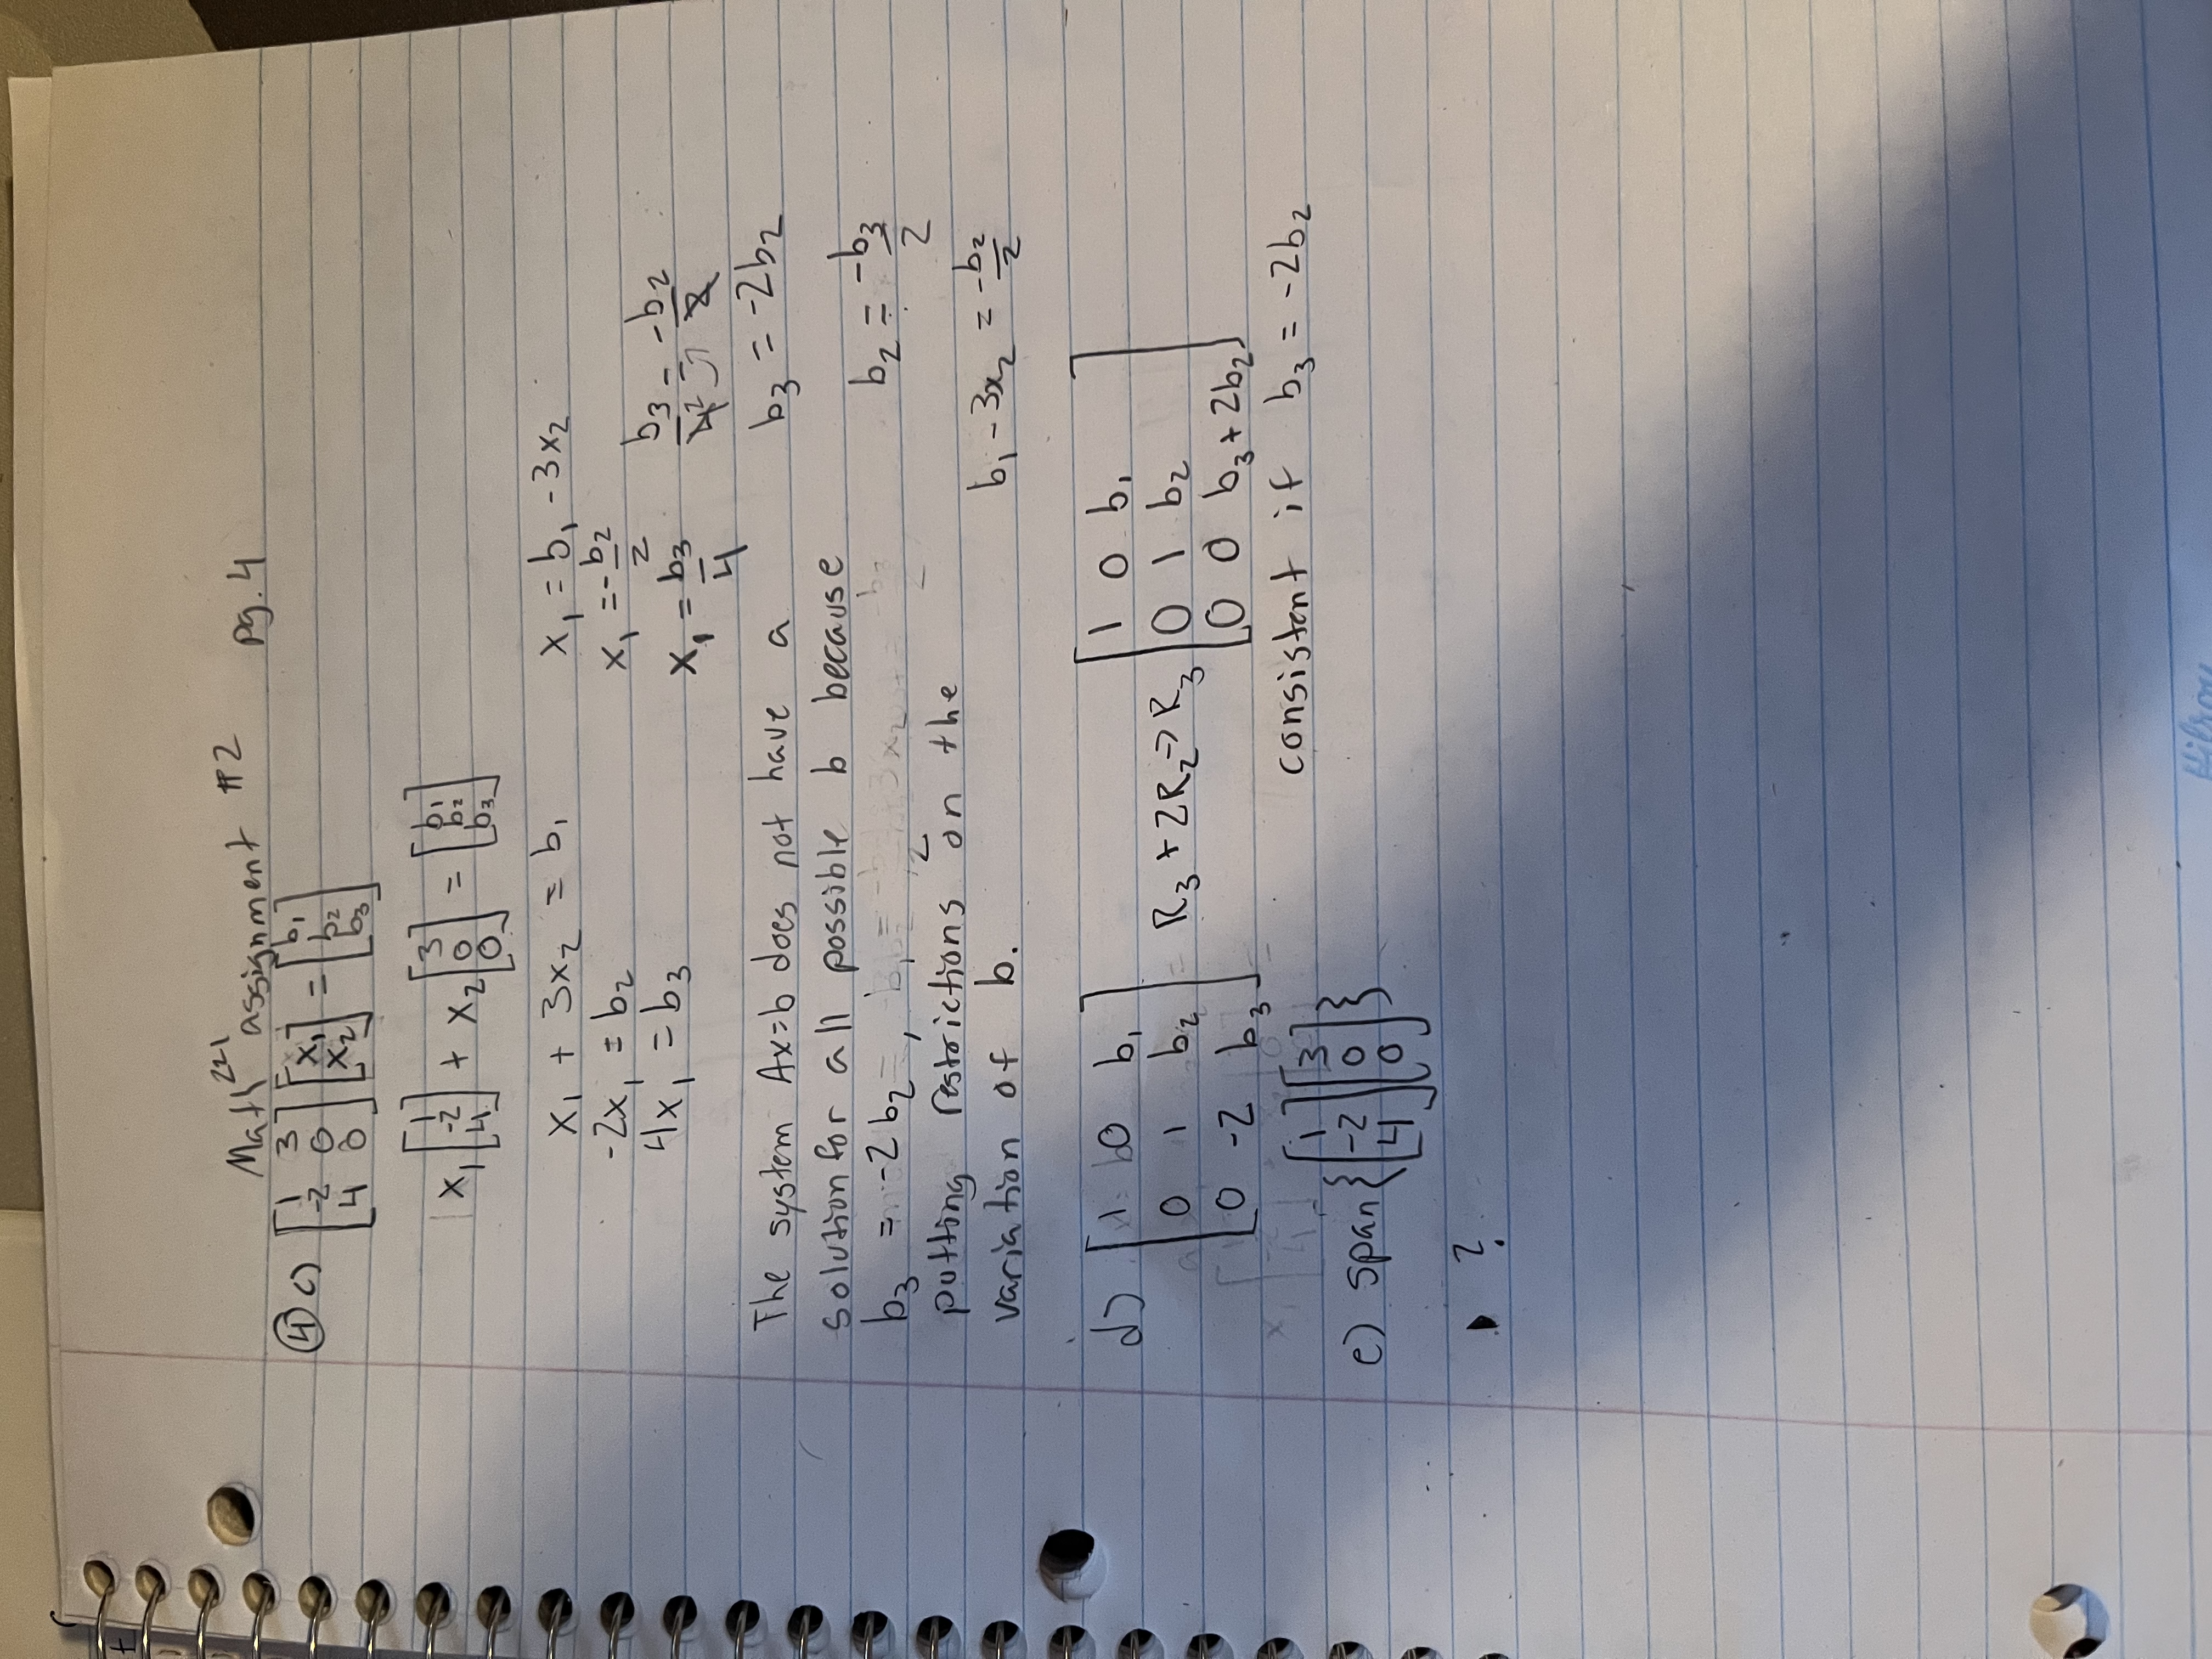 Math 221 assignment #2 pg. 4
④ c) [1 3; -2 0; 4 0] [x₁; x₂] = [b₁; b₂; b₃]
x₁ [1; -2; 4] + x₂ [3; 0; 0] = [b₁; b₂; b₃]
x₁ + 3x₂ = b₁
-2x₁ = b₂
4x₁ = b₃
x₁ = b₁ - 3x₂
x₁ = -b₂/2
x₁ = b₃/4
b₃/4² = -b₂/2
b₃ = -2b₂
b₂ = -b₃/2
b₁ - 3x₂ = -b₂/2
The system Ax=b does not have a
solution for all possible b because
b₃ = -2b₂,
putting restrictions on the
variation of b.
d) [1 0 b₁; 0 1 b₂; 0 -2 b₃] R₃ + 2R₂ → R₃ [1 0 b₁; 0 1 b₂; 0 0 b₃+2b₂]
consistent if b₃ = -2b₂
e) span{[1; -2; 4] [3; 0; 0]}
?
Hilroy